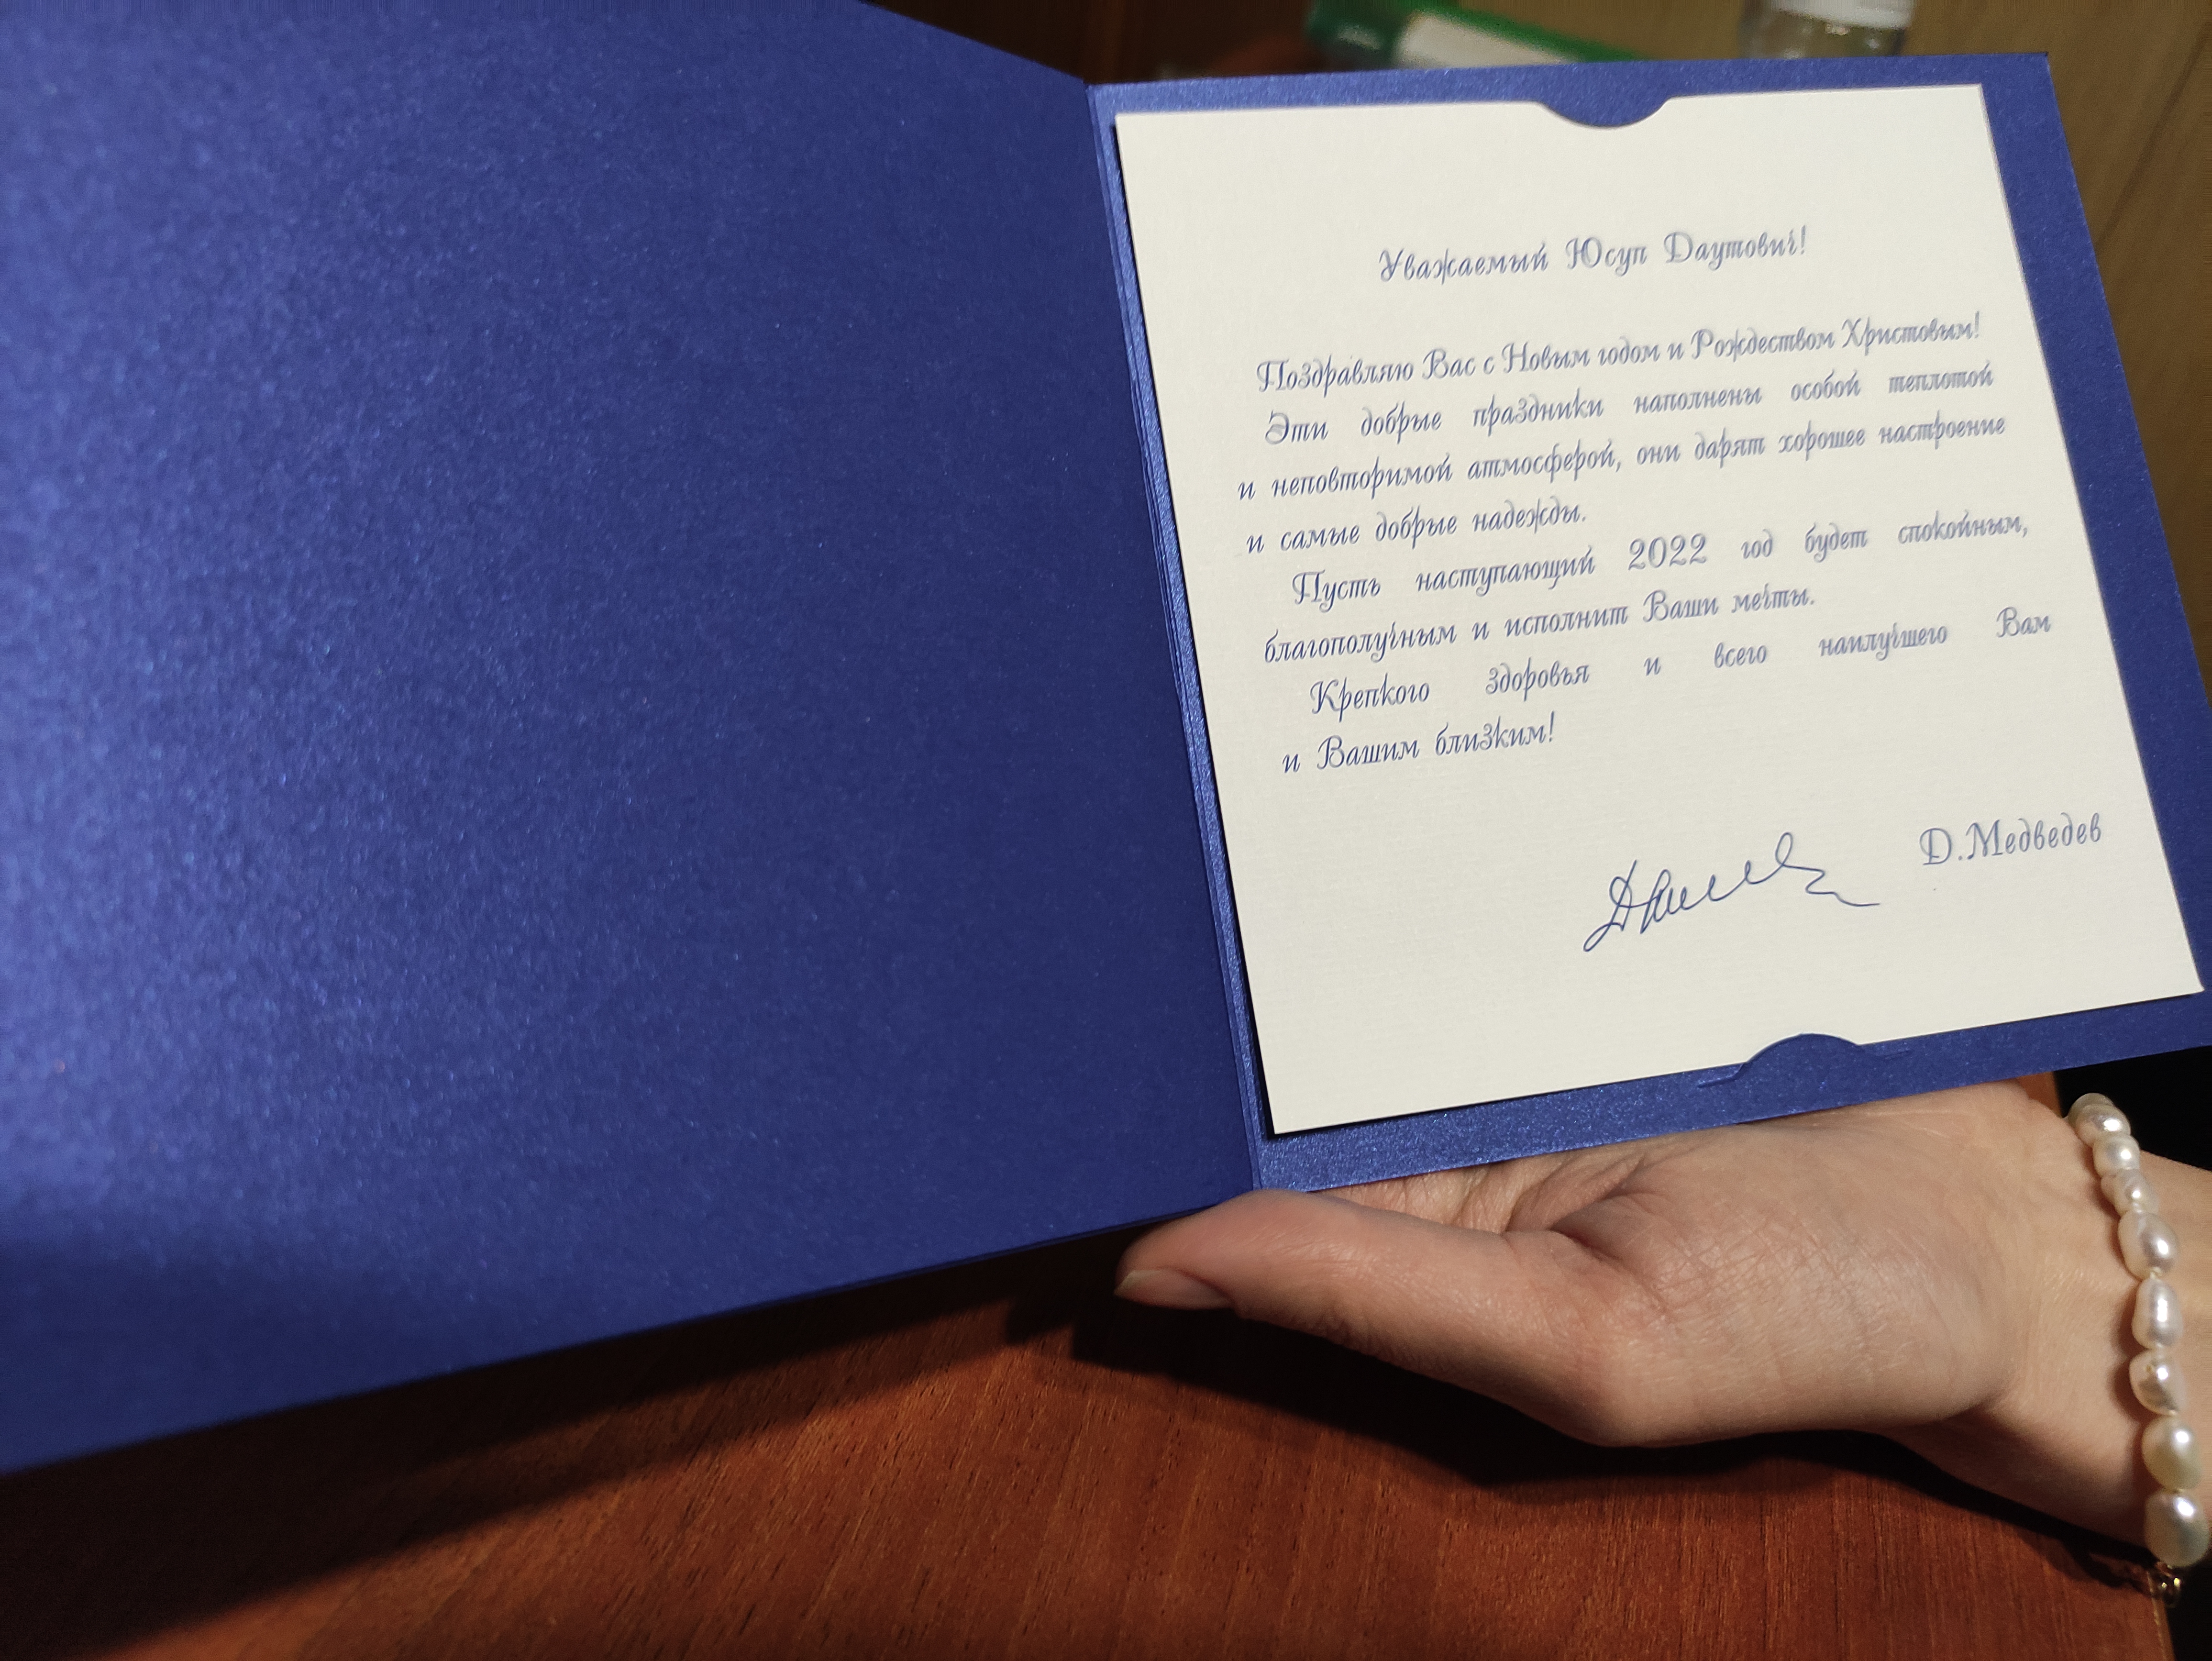 Уважаемый Юсуп Даутович!
Поздравляю Вас с Новым годом и Рождеством Христовым!
Эти добрые праздники наполнены особой теплотой
и неповторимой атмосферой, они дарят хорошее настроение
и самые добрые надежды.
Пусть наступающий 2022 год будет спокойным,
благополучным и исполнит Ваши мечты.
Крепкого здоровья и всего наилучшего Вам
и Вашим близким!
Д.Медведев